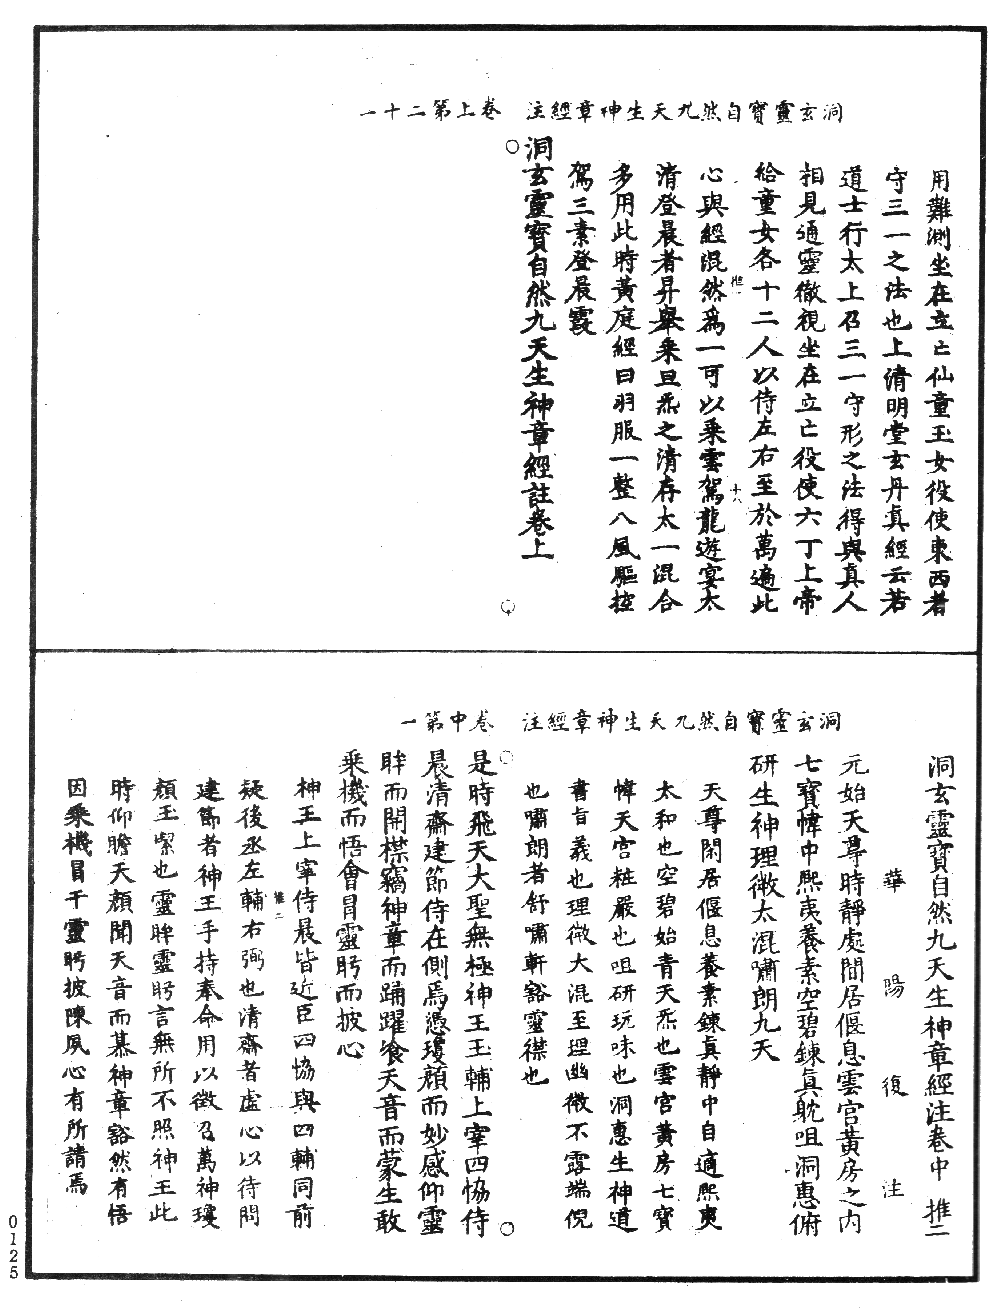 洞玄靈寶自然九天生神章經注　卷上第二十一
用難測坐在立亡仙童玉女役使東西者
守三一之法也上清明堂玄丹真經云若
道士行太上召三一守形之法得與真人
相見通靈徹視坐在立亡役使六丁上帝
給童女各十二人以侍左右至於萬遍此
推一　十八
心與經混然為一可以乘雲駕龍遊宴太
清登晨者昇舉乘旦炁之清存太一混合
多用此時黃庭經曰羽服一整八風驅控
駕三素登晨霞
洞玄靈寶自然九天生神章經註卷上
洞玄靈寶自然九天生神章經注　卷中第一
洞玄靈寶自然九天生神章經注卷中　推二
華陽復注
元始天尊時靜處閒居偃息雲宮黃房之內
七寶幃中熙夷養素空碧鍊真耽咀洞惠俯
研生神理微太混嘯朗九天
天尊閑居偃息養素鍊真靜中自適熙夷
太和也空碧始青天炁也雲宮黃房七寶
幃天宮粧嚴也咀研玩味也洞惠生神道
書旨義也理微大混至理幽微不露端倪
也嘯朗者舒嘯軒豁靈襟也
是時飛天大聖無極神王玉輔上宰四協侍
晨清齋建節侍在側焉憑瓊顏而妙感仰靈
眸而開襟竊神章而踊躍飡天音而蒙生敢
乘機而悟會冒靈眄而披心
神王上宰侍晨皆近臣四協與四輔同前
疑後丞左輔右弼也清齋者虛心以待問
推二
建節者神王手持奉命用以徵召萬神瓊
顏玉縏也靈眸靈眄言無所不照神王此
時仰瞻天顏聞天音而慕神章豁然有悟
因乘機冒干靈眄披陳夙心有所請焉
0125